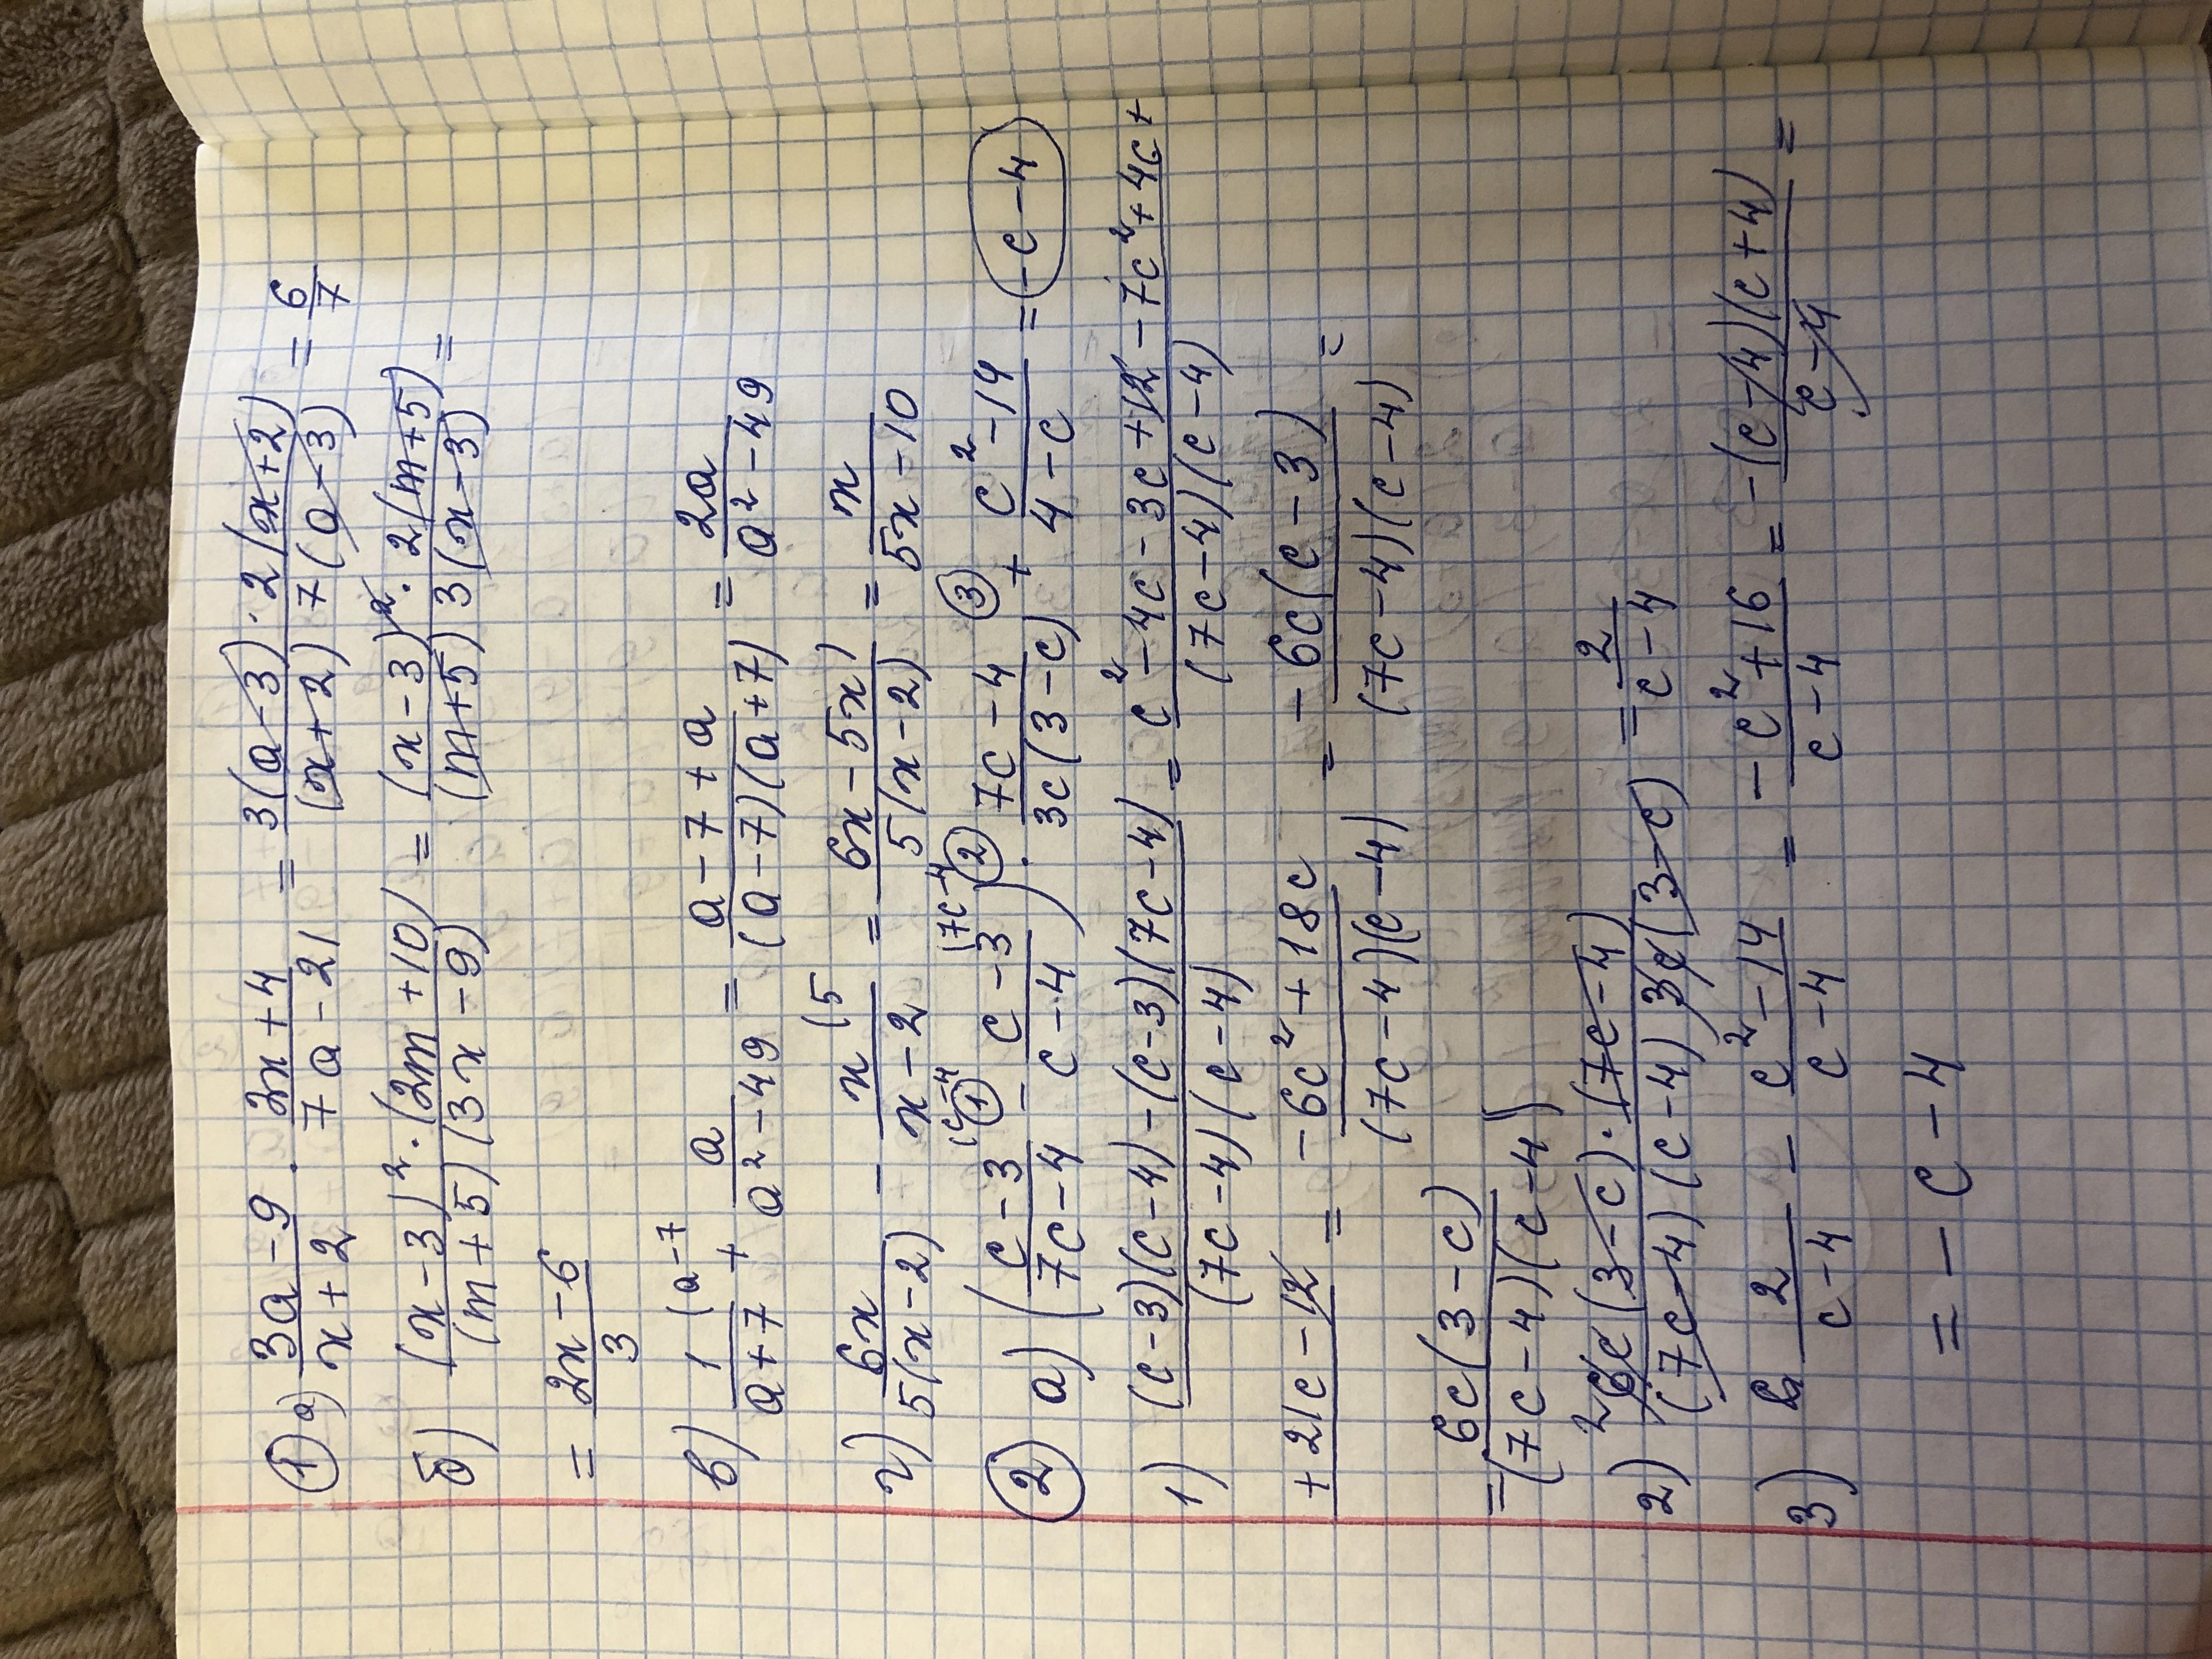 ① а) (3a-9)/(x+2) · (2x+4)/(7a-21) = (3(a-3) · 2(x+2))/((x+2) 7(a-3)) = 6/7
б) (x-3)²/(m+5) · (2m+10)/(3x-9) = ((x-3)² · 2(m+5))/((m+5) 3(x-3)) =
= (2x-6)/3
в) 1/(a+7) (a-7 + a/(a²-49) = (a-7+a)/((a-7)(a+7)) = 2a/(a²-49)
г) 6x/(5(x-2)) - x/(x-2) (5 = (6x-5x)/(5(x-2)) = x/(5x-10)
② а) ((c-3)/(7c-4) (c-4 ① - (c-3)/(c-4) (7c-4) ② · (7c-4)/(3c(3-c)) ③ + (c²-14)/(4-c) = -c-4
1) ((c-3)(c-4)-(c-3)(7c-4))/((7c-4)(c-4)) = (c²-4c-3c+12-7c²+4c+)/((7c-4)(c-4))
(+21c-12)/ = (-6c²+18c)/((7c-4)(c-4)) = (-6c(c-3))/((7c-4)(c-4)) =
= (6c(3-c))/((7c-4)(c-4))
2) (²6c(3-c) · (7c-4))/((7c-4)(c-4) 3c(3-c)) = 2/(c-4)
3) 2/(c-4) - (c²-14)/(c-4) = (-c²+16)/(c-4) = -((c-4)(c+4))/(c-4) =
= -c-4